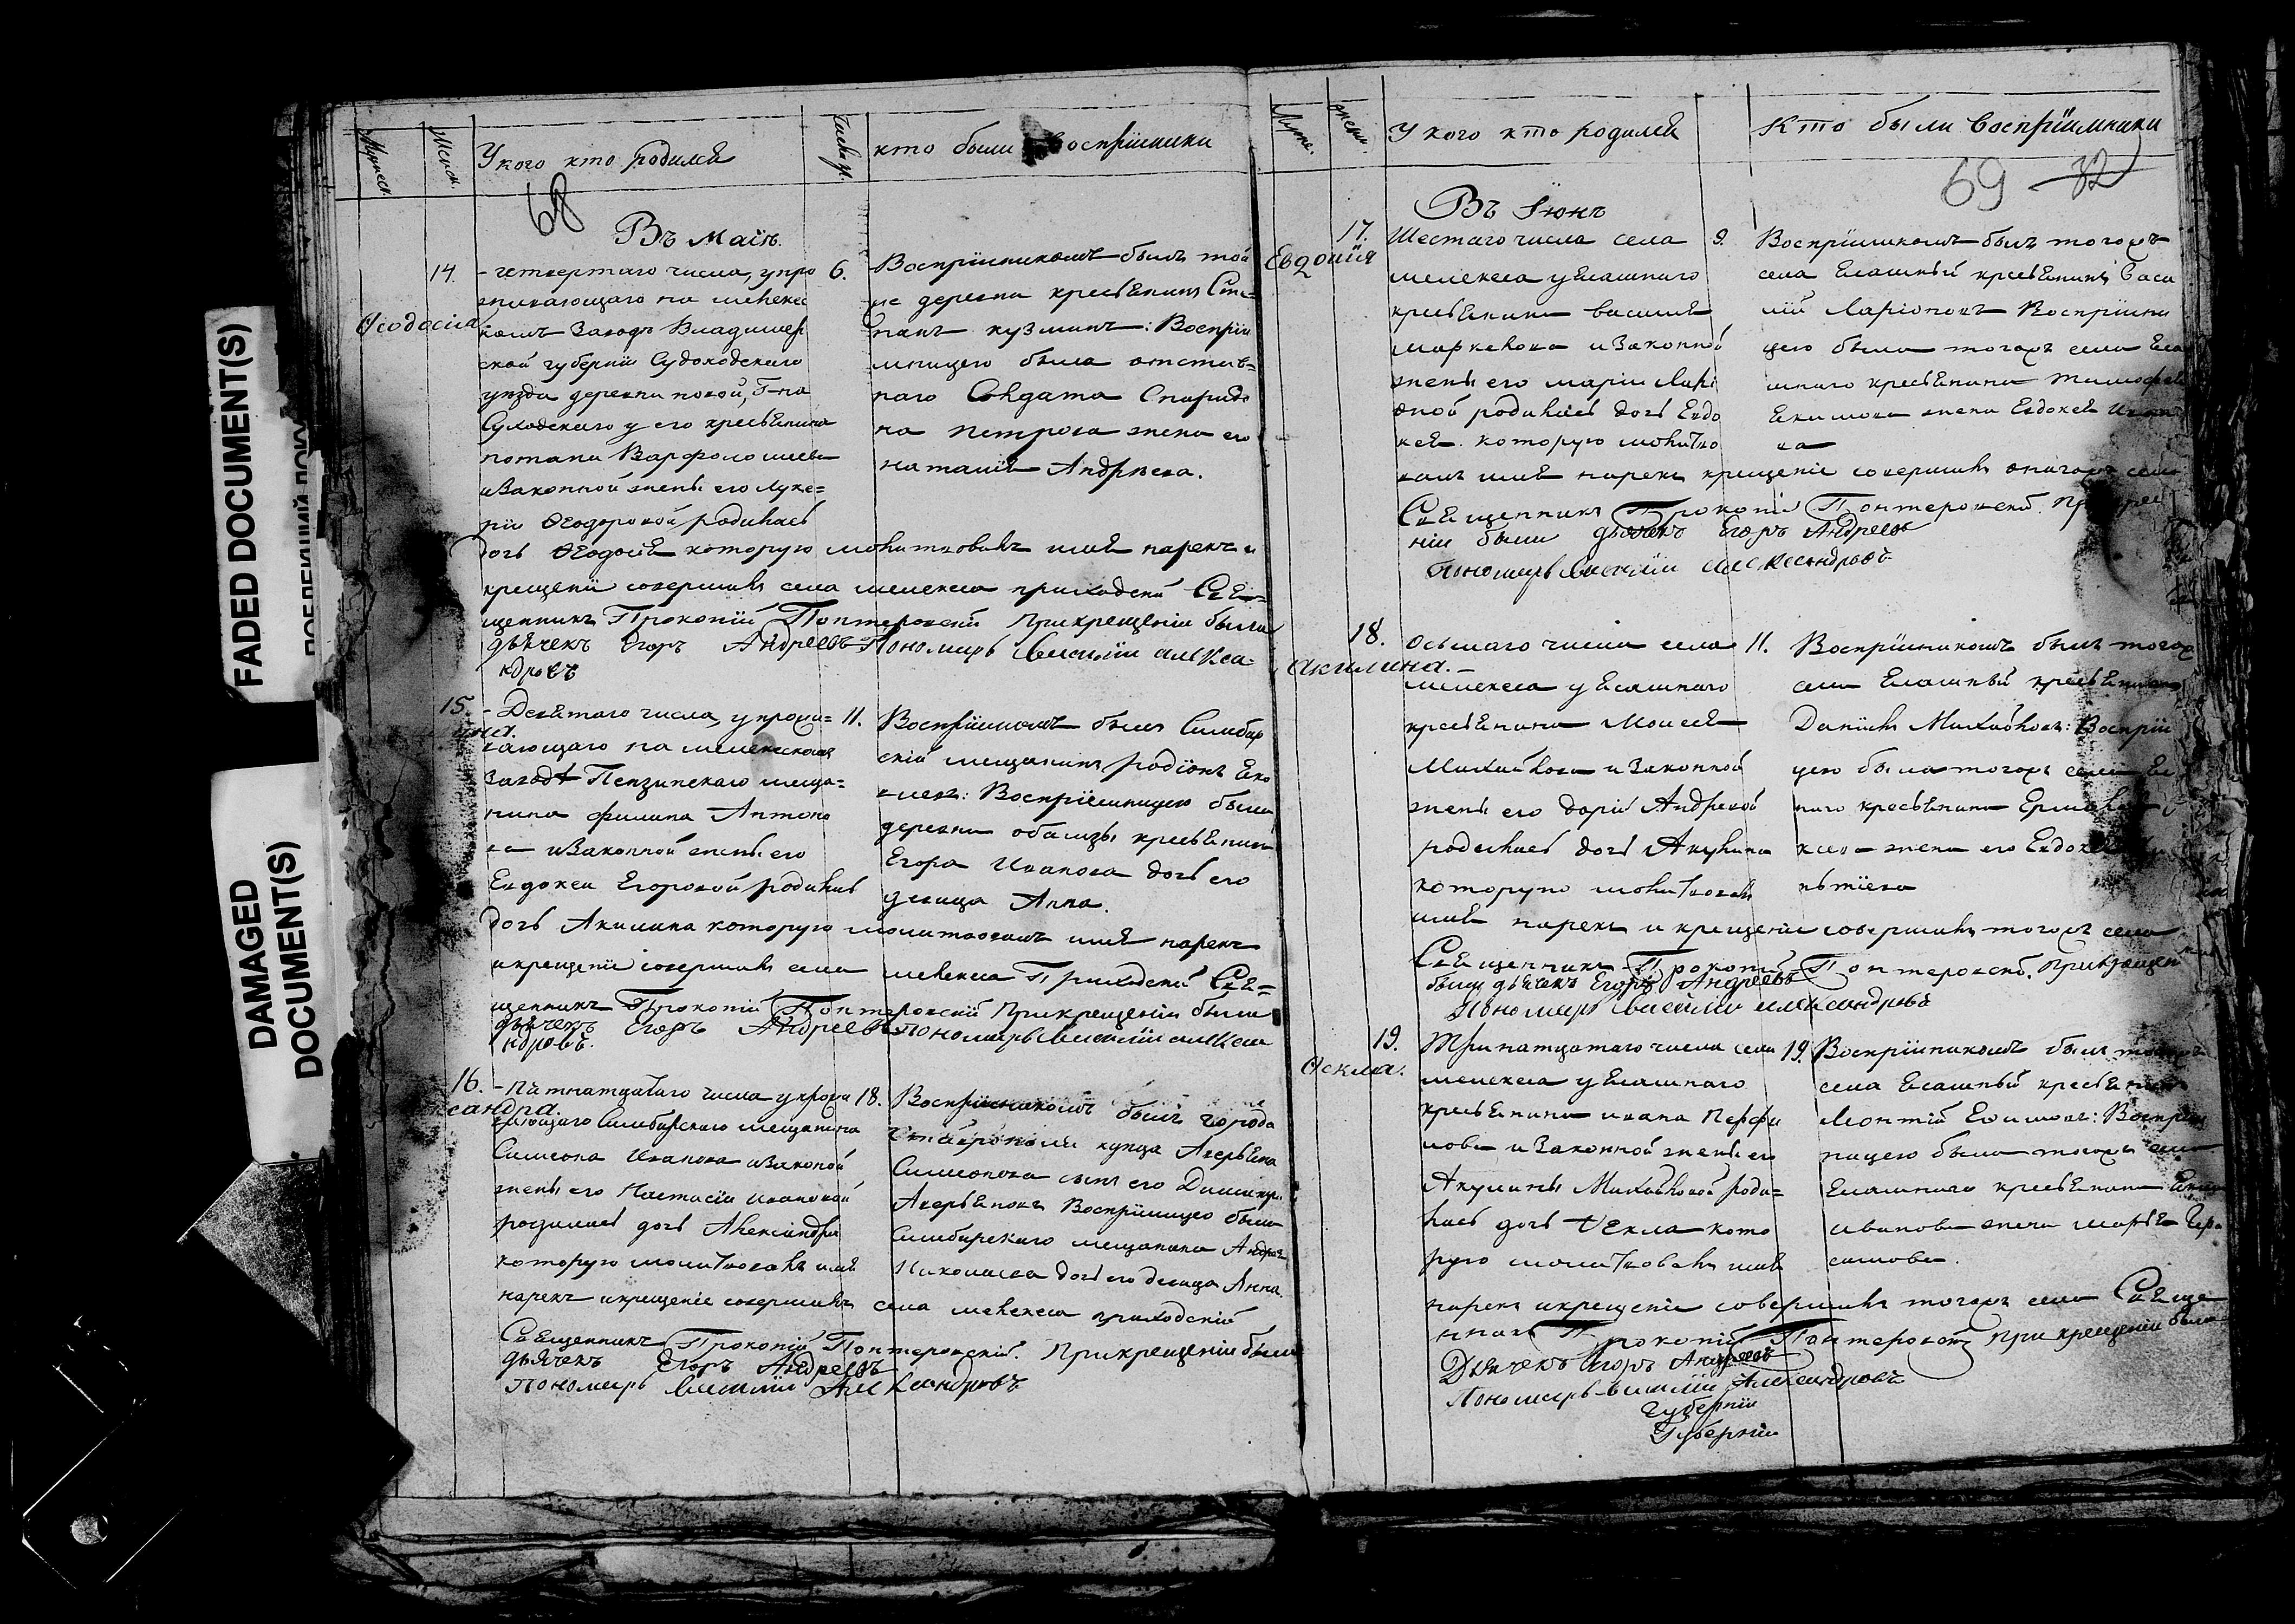 FADED DOCUMENT(S)
DAMAGED
DOCUMENT(S)
Мужеск.
Женск.
У кого кто родился
кто были воспріемники
68
Въ Маіѣ.
14.
Ѳеодосия
- четвертаго числа, у про
живающаго на мелекес
комъ Заводѣ Владимер
ской губерніи Судогодскаго
уѣзда деревни новой, Г-на
у его крестьянина
потапа Варфоломеева
и законной жены его Луке=
ріи Ѳеодоровой, родилась
дочь Ѳеодосія которую молитвовалъ имя нарекъ и
крещеніе совершилъ села мелекеса приходской Свя=
щенникъ Прокопій Понтеровскій При крещеніи были
дьячекъ Егоръ Андреевъ Пономарь Василій Алекса
ндровъ
6.
Воспріемникомъ былъ той
же деревни крестьянинъ Сте=
панъ кузминъ: Воспріе
мницею была отстав=
наго Солдата Спиридо
на петрова жена его
наталія Андрѣева.
15.
- Девятаго числа, у прожи=
вающаго на мелекескомъ
заводѣ Пензинскаго меща=
нина филипа Антоно
ва и законной жены его
Евдокеи Егоровой родилась
дочь Акилина которую молитвовалъ имя нарекъ
и крещеніе совершилъ села мелекеса Приходской Свя=
щенникъ Прокопій Понтеровскій При крещеніи были
дьячекъ Егоръ Андреевъ Пономарь Василій Алекса
ндровъ.
11.
Воспріемникомъ былъ Симбир
скій мещанинъ родіонъ Яко
влевъ: Воспріемницею была
деревни крестьянина
Егора Иванова дочь его
девица Анна.
16.
ксандра.
- Пятнатцатаго числа у прожи
вающаго Симбирскаго мещанина
Симеона Иванова и законой
жены его Настасіи Ивановой
родилась дочь Александра
которую молитвовалъ имя
нарекъ и крещеніе совершилъ села мелекеса приходскій
Священникъ Прокопій Понтеровскій. При крещеніи были
дьячекъ Егоръ Андреевъ
Пономарь Василій Александровъ
18.
Воспріемникомъ былъ города
Ставрополя купца Аверьяна
Симеонова сынъ его Димитрій
Аверьяновъ Воспріемницею была
Симбирскаго мещанина Андрея
Николаева дочь его девица Анна.
Муже.
женск.
У кого кто родился
Кто были воспріимники
69 32
Въ Іюнѣ
17.
Евдокия
Шестаго числа села
мелекеса у Ясашнаго
крестьянина василія
маркелова и законной
жены его маріи Лари
оной родилась дочь Евдо
кея. которую молитво
валъ имя нарекъ крещеніе совершилъ онагожъ села
Священникъ Прокопій Понтеровский. При креще
ніи были дьячекъ Егоръ Андреевъ
Пономарь Василіи Александровъ
9.
Воспріимникомъ былъ тогожъ
села Ясашный крестьянинъ Васи
лій Ларіоновъ Воспріимни
цею была тогожъ села Яса
шнаго крестьянина тимофея
Екимова жена Евдокея Ивано
ва
18.
Акилина. -
Осьмаго числа села
мелекеса у Ясашнаго
крестьянина Моисея
Михайлова и законной
жены его Дарьи Андреевой
родилась дочь Акулина
которую молитвовалъ
имя нарекъ и крещеніе совершилъ тогожъ села
Священникъ Прокопій Понтеровскій. При крещен
были дьячекъ Егоръ Андреевъ
Пономарь Василіи Александровъ
11.
Воспріемникомъ былъ тогожъ
села Ясашный крестьянинъ
Данилъ Михайловъ: Воспріи
цею была тогожъ села Яс
наго крестьянина
жена его Евдокея
19.
Ѳекла.
Тринатцатаго числа села
мелекеса у Ясашнаго
крестьянина ивана Перфи
лова и законной жены его
Акулины Михайловой роди=
лась дочь Ѳекла кото
рую молитвовалъ имя
нарекъ и крещеніе совершилъ тогожъ села Свяще
нникъ Прокопій Понтеровскій при крещеніи были
Дьячекъ Егоръ Андреевъ
Пономарь Василіи Александровъ
Губерніи
Губерніи
19.
Воспріемникомъ былъ тогожъ
села Ясашный крестьянинъ
Леонтій Ефимовъ: Воспріем
ницею была тогожъ села
Ясашнаго крестьянина
иванова жена марья Гера
симова.